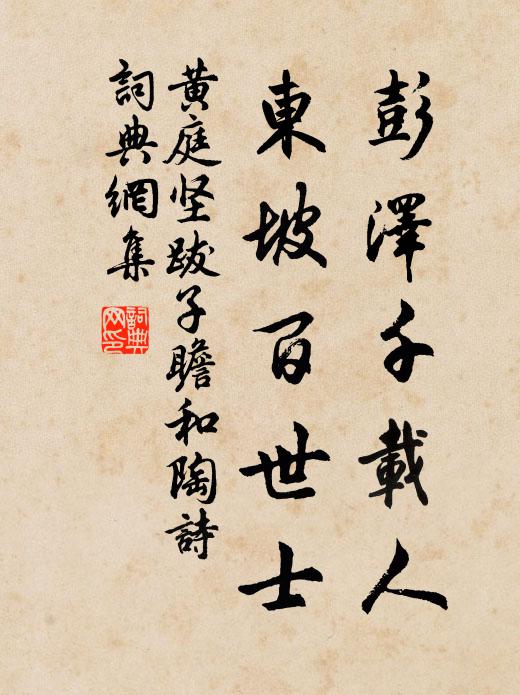 彭澤千載人
東坡百世士
黃庭坚跋子瞻和陶詩
詞典網集
詞典網印